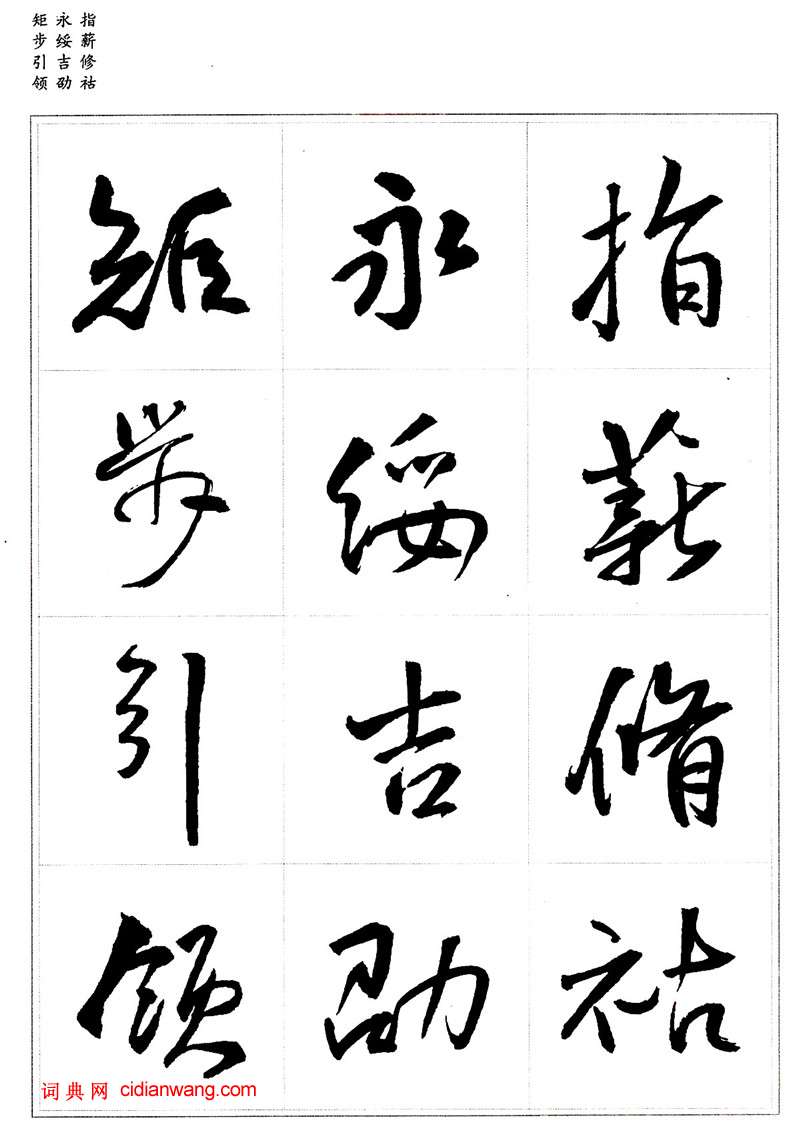 指薪修祜
永绥吉劭
矩步引领
指薪脩祜
永綏吉劭
矩步引領
词典网 cidianwang.com